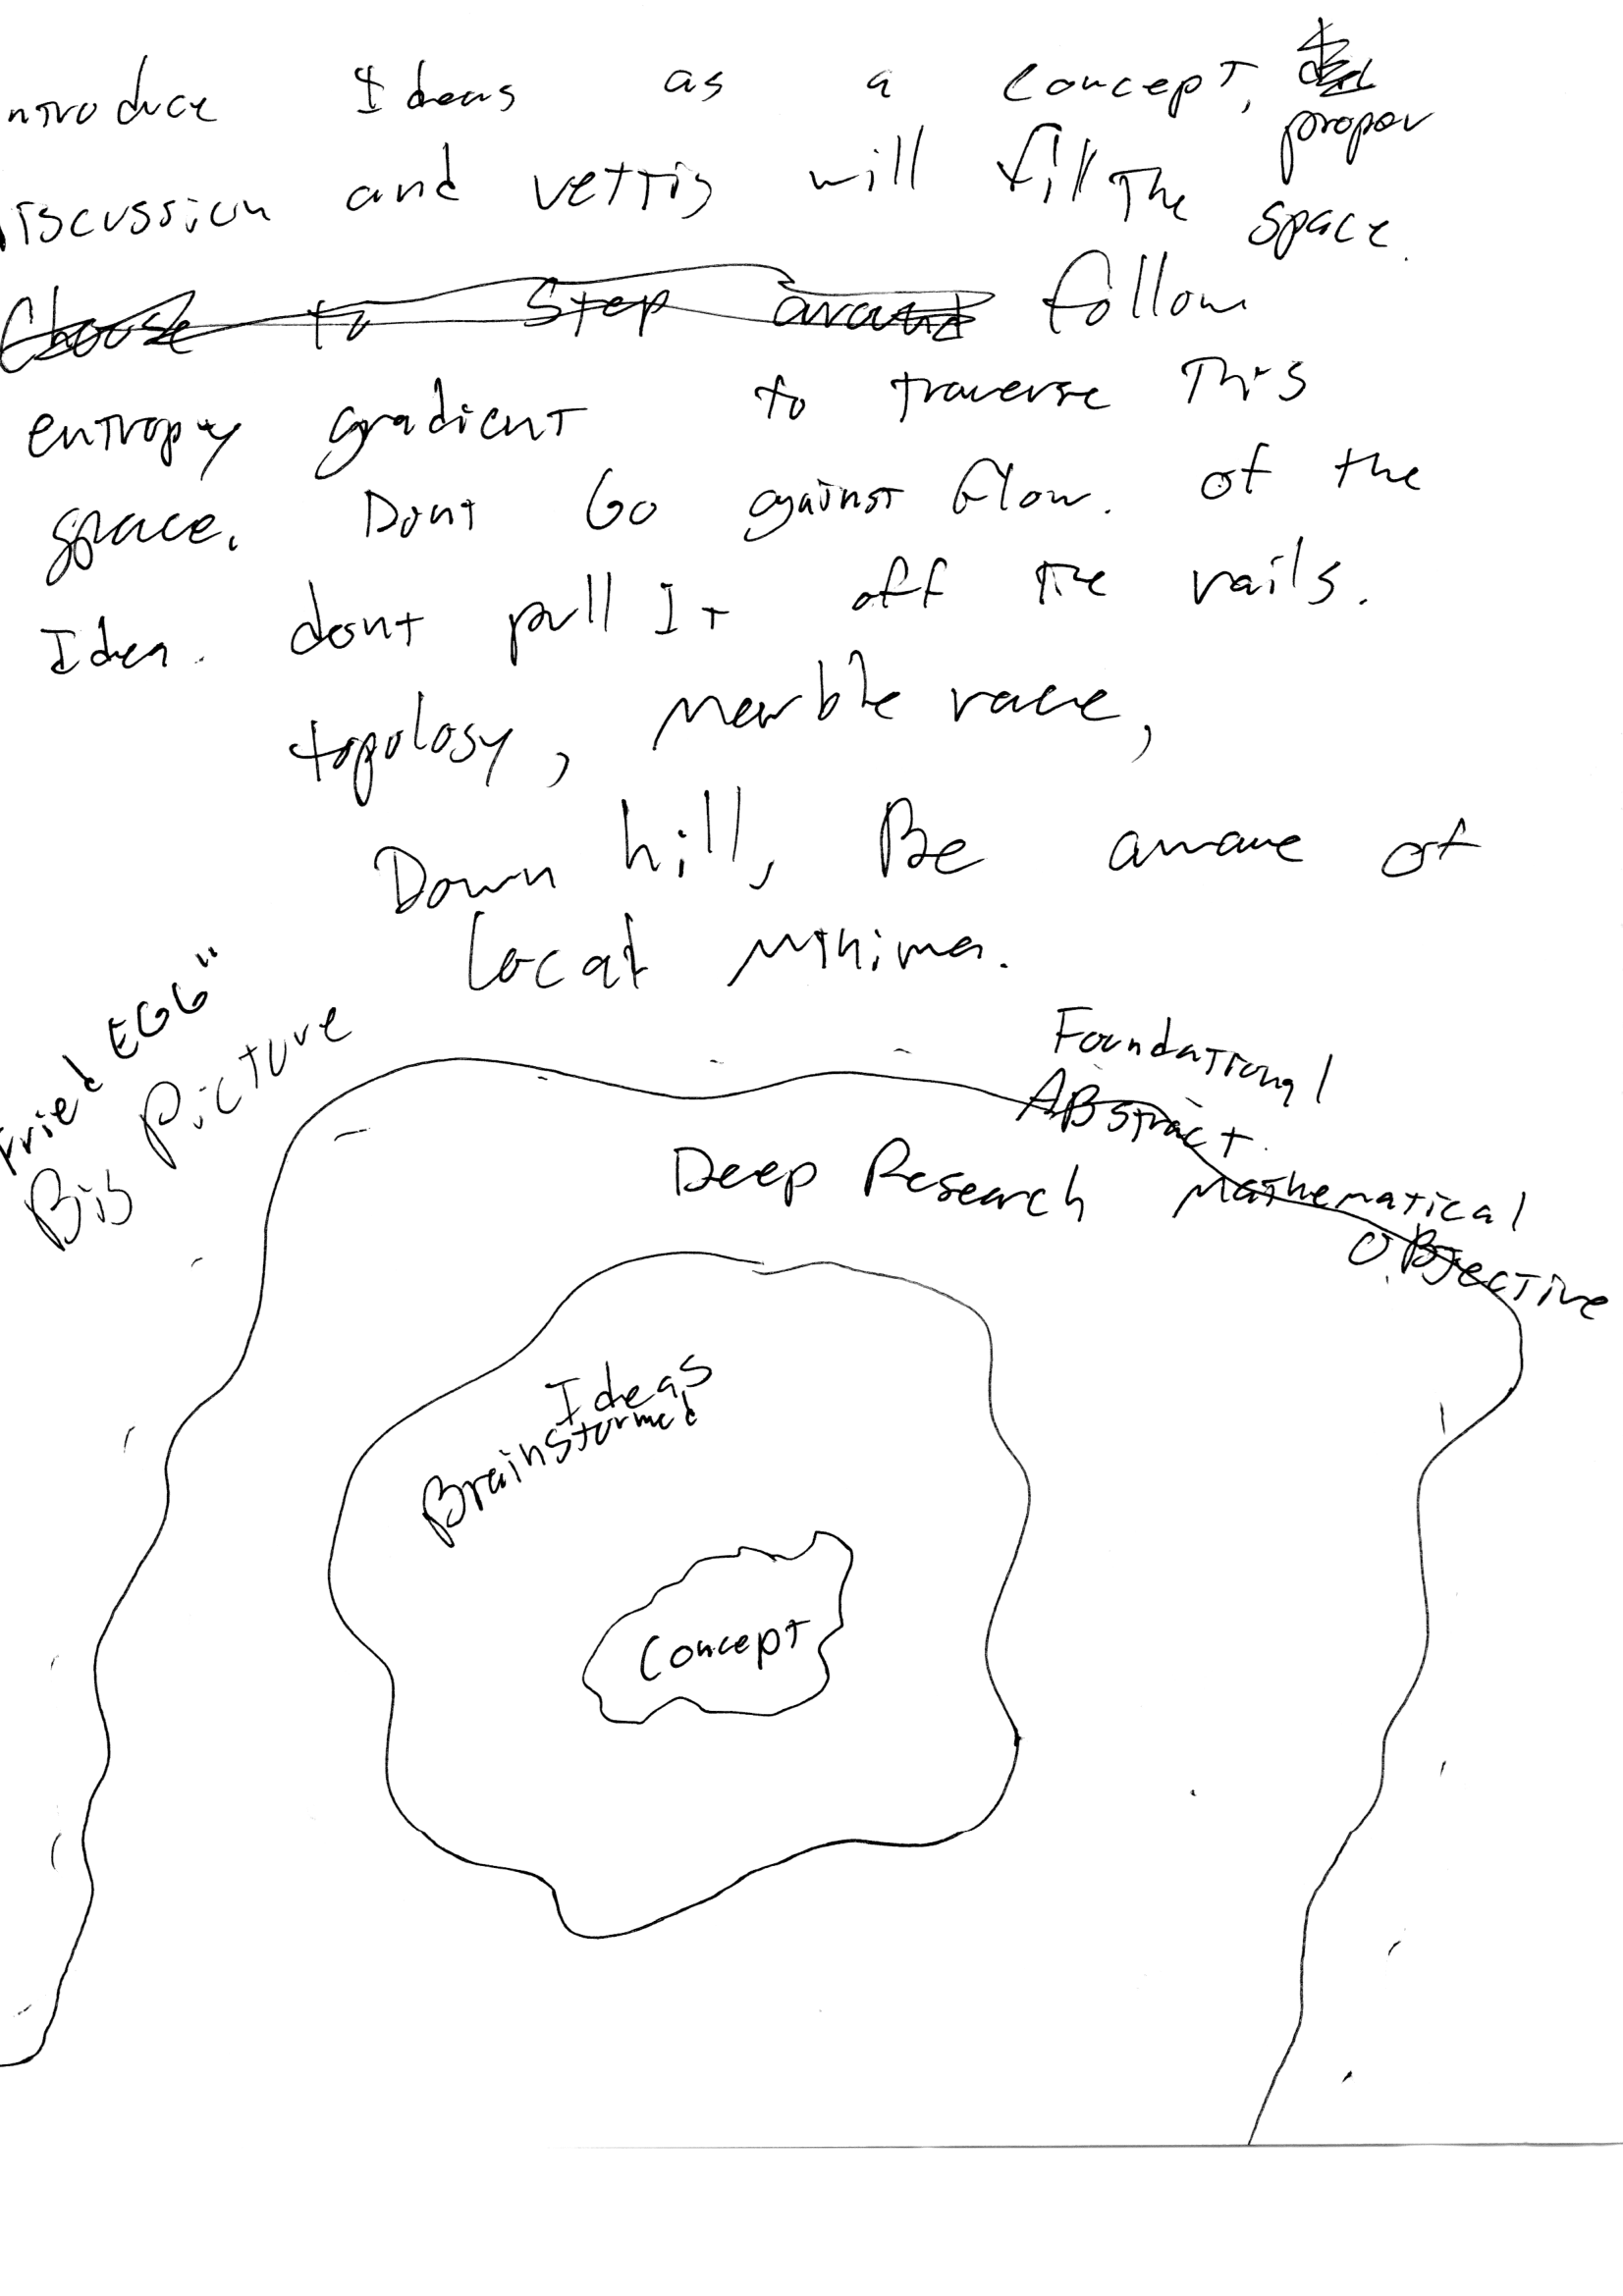 ntroduce Ideas as a concept, proper
iscussion and vetting will fill the space.
Choose to Step around follow
entropy gradient to traverse This
space. Dont Go against flow. of the
Idea. dont pull It off the rails.
topology, marble race,
Down hill, Be aware of
local minima.
Fried EGG"
Big Picture
Foundational
ABstract
Deep Research Mathematical
OBJective
Ideas
Brainstormed
Concept